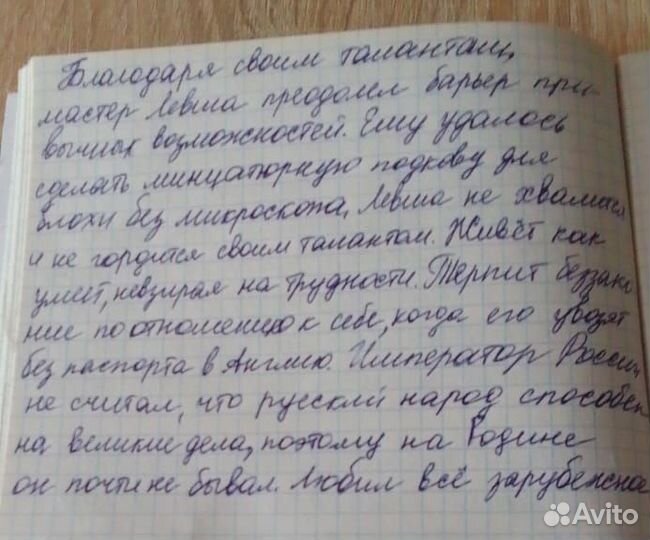 Благодаря своим талантам,
мастер Левша преодолел барьер при-
вычных возможностей. Ему удалось
сделать миниатюрную подкову для
блохи без микроскопа, Левша не хвалился
и не гордится своим талантом. Живёт как
умеет, невзирая на трудности. Терпит беззако
ние по отношению к себе, когда его увозят
без паспорта в Англию. Император России
не считал, что русский народ способен
на великие дела, поэтому на Родине
он почти не бывал. Любил всё зарубежное
Avito